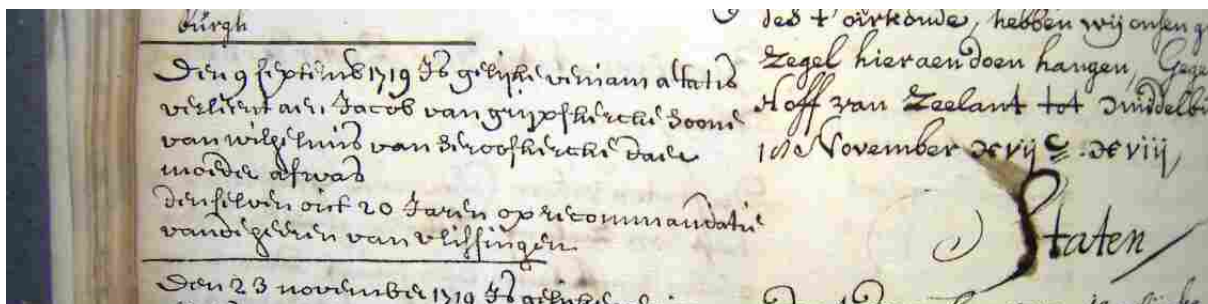 burgh
Den 9 septemb 1719 Is gelijke veniam aetatis
verlient aen Jacob van grijpskercke soone
van wilhelmus van seroofskercke daer
moeder af was
denselven out 20 Jaren op recommandatie
vande heeren van vlissingen
Den 23 november 1719 Is gelijke
des t'oirkonde, hebben wij onsen g
Zegel hieraen doen hangen, Gege
Hoff van Zeelant tot Middelb
November xvij C xviij
Staten